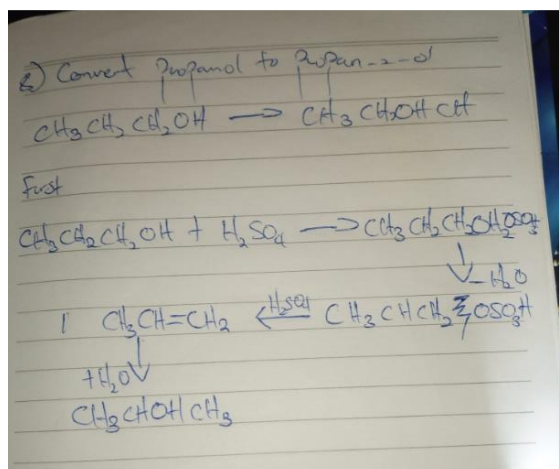 2) Convert Propanol to Propan-2-ol
CH3 CH2 CH2OH → CH3 CH2OH CH
First
CH3CH2CH2OH + H2SO4 → CH3 CH2CH2OH2OSO3
-H2O
CH3CH=CH2 ← H2SO4 CH3 CHCH2 OSO3H
+H2O
CH3CHOHCH3